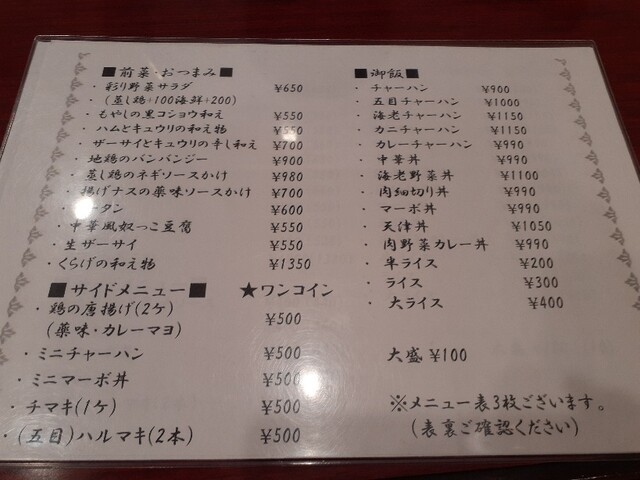 ■前菜・おつまみ■
・彩り野菜サラダ ¥650
・(蒸し鶏+100海鮮+200)
・もやしの黒コショウ和え ¥550
・ハムとキュウリの和え物 ¥550
・ザーサイとキュウリの辛し和え ¥700
・地鶏のバンバンジー ¥900
・蒸し鶏のネギソースかけ ¥980
・揚げナスの薬味ソースかけ ¥700
タン ¥600
・中華風奴っこ豆腐 ¥550
・生ザーサイ ¥550
・くらげの和え物 ¥1350
■サイドメニュー■ ★ワンコイン
・鶏の唐揚げ(2ケ) ¥500
(薬味・カレーマヨ)
・ミニチャーハン ¥500
・ミニマーボ丼 ¥500
・チマキ(1ケ) ¥500
・(五目)ハルマキ(2本) ¥500
■御飯■
・チャーハン ¥900
・五目チャーハン ¥1000
・海老チャーハン ¥1150
・カニチャーハン ¥1150
・カレーチャーハン ¥990
・中華丼 ¥990
・海老野菜丼 ¥1100
・肉細切り丼 ¥990
・マーボ丼 ¥990
・天津丼 ¥1050
・肉野菜カレー丼 ¥990
・半ライス ¥200
・ライス ¥300
・大ライス ¥400
大盛 ¥100
※メニュー表3枚ございます。
(表裏ご確認ください)